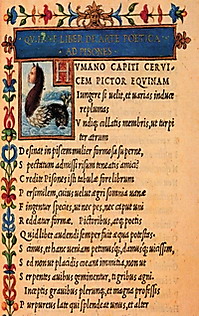 LIBER DE ARTE POETICA
AD PISONES.
HVMANO CAPITI CERVI
CEM PICTOR EQVINAM
Iungere si uelit, et uarias induce
re plumas
V ndiq; collatis membris, ut turpi
ter atrum
D esinat in piscem mulier formosa superne,
S pectatum admissi risum teneatis amici?
C redite Pisones isti tabulæ fore librum
P ersimilem, cuius uelut ægri somnia uanæ
F ingentur species, ut nec pes, nec caput uni
R eddatur formæ. Pictoribus, atq; poetis
Q uid libet audendi semper fuit æqua potestas.
S cimus, et hanc ueniam petimusq;, damusq; uicissim,
S ed non ut placidis coeant immitia, non ut
S erpentes auibus geminentur, tigribus agni.
Inceptis grauibus plerunq;, et magna professis
P urpureus late qui splendeat unus, et alter